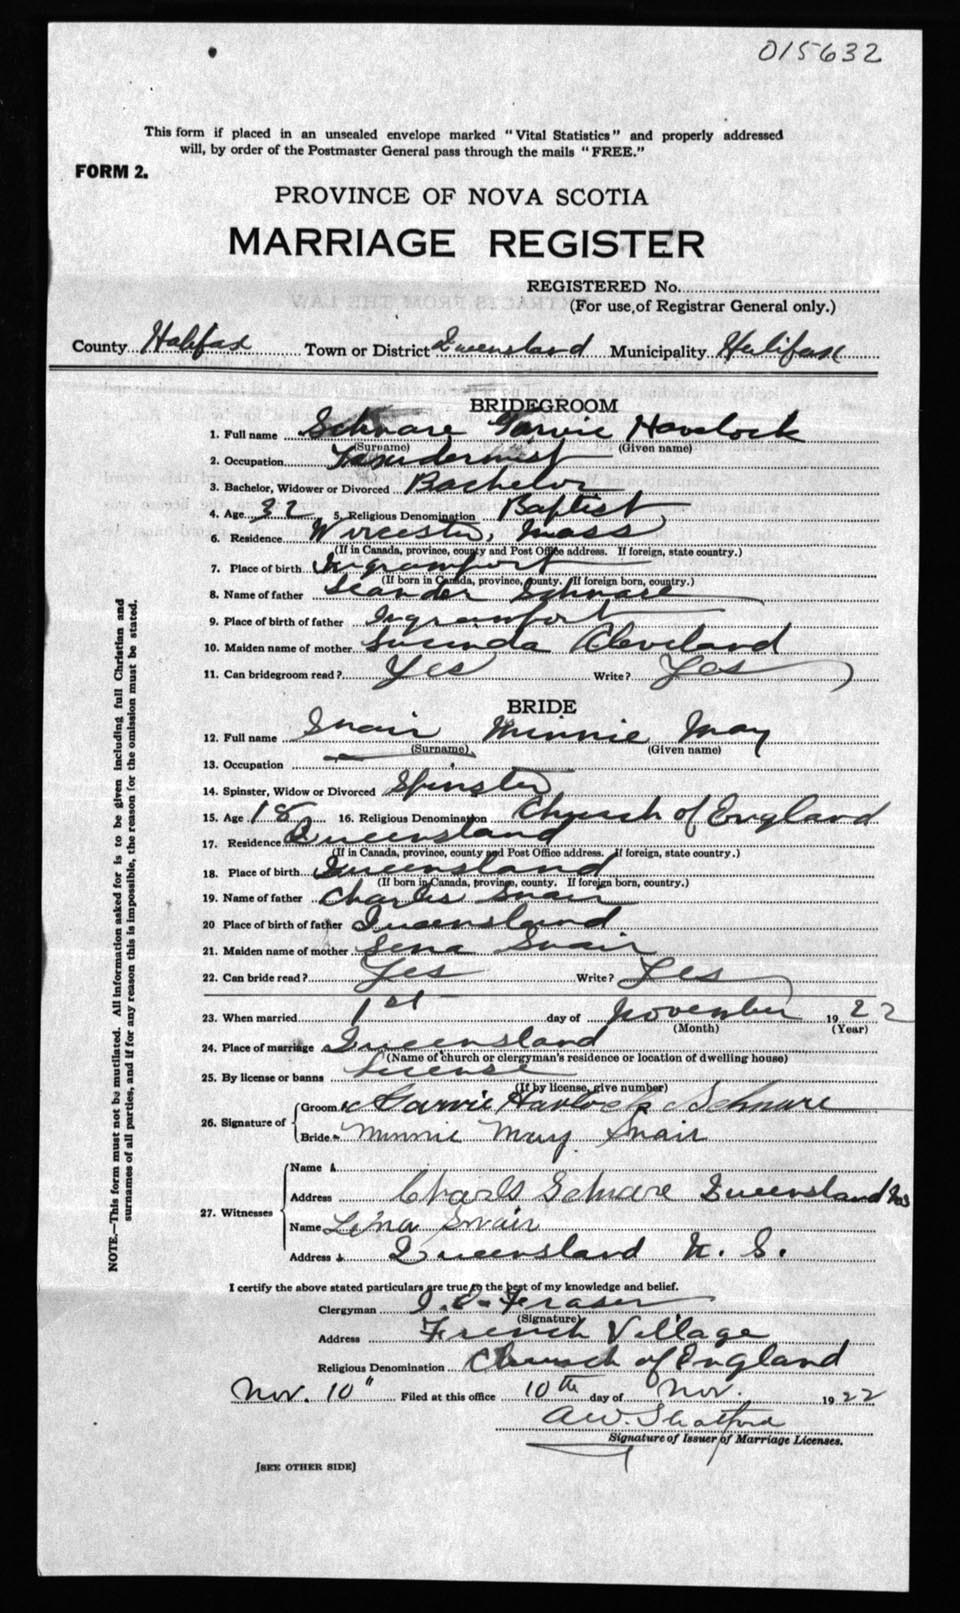 015632
This form if placed in an unsealed envelope marked "Vital Statistics" and properly addressed
will, by order of the Postmaster General pass through the mails "FREE."
FORM 2.
PROVINCE OF NOVA SCOTIA
MARRIAGE REGISTER
REGISTERED No.
(For use of Registrar General only.)
County Halifax Town or District Queensland Municipality Halifax
BRIDEGROOM
1. Full name Schnare Garvie Havelock
(Surname) (Given name)
2. Occupation
3. Bachelor, Widower or Divorced Bachelor
4. Age 32 5. Religious Denomination Baptist
6. Residence Worcester, Mass
(If in Canada, province, county and Post Office address. If foreign, state country.)
7. Place of birth Ingramport
(If born in Canada, province, county. If foreign born, country.)
8. Name of father Leander Schnare
9. Place of birth of father Ingramport
10. Maiden name of mother Lucinda Cleveland
11. Can bridegroom read? Yes Write? Yes
BRIDE
12. Full name Snair Minnie May
(Surname) (Given name)
13. Occupation —
14. Spinster, Widow or Divorced Spinster
15. Age 18 16. Religious Denomination Church of England
17. Residence Queensland
(If in Canada, province, county and Post Office address. If foreign, state country.)
18. Place of birth Queensland
(If born in Canada, province, county. If foreign born, country.)
19. Name of father Charles Snair
20 Place of birth of father Queensland
21. Maiden name of mother Lena Snair
22. Can bride read? Yes Write? Yes
23. When married 1st day of November 1922
(Month) (Year)
24. Place of marriage Queensland
(Name of church or clergyman's residence or location of dwelling house)
25. By license or banns License
(If by license, give number)
26. Signature of
Groom Garvie Havlock Schnare
Bride Minnie May Snair
27. Witnesses
Name
Address Charls Schnare Queensland N.S
Name Lena Snair
Address Queensland N. S.
I certify the above stated particulars are true to the best of my knowledge and belief.
Clergyman Fraser
(Signature)
Address French Village
Religious Denomination Church of England
Nov. 10" Filed at this office 10th day of Nov. 1922
A.W. Shatford
Signature of Issuer of Marriage Licenses.
[SEE OTHER SIDE]
NOTE.—This form must not be mutilated. All information asked for is to be given including full Christian and
surnames of all parties, and if for any reason this is impossible, the reason for the omission must be stated.